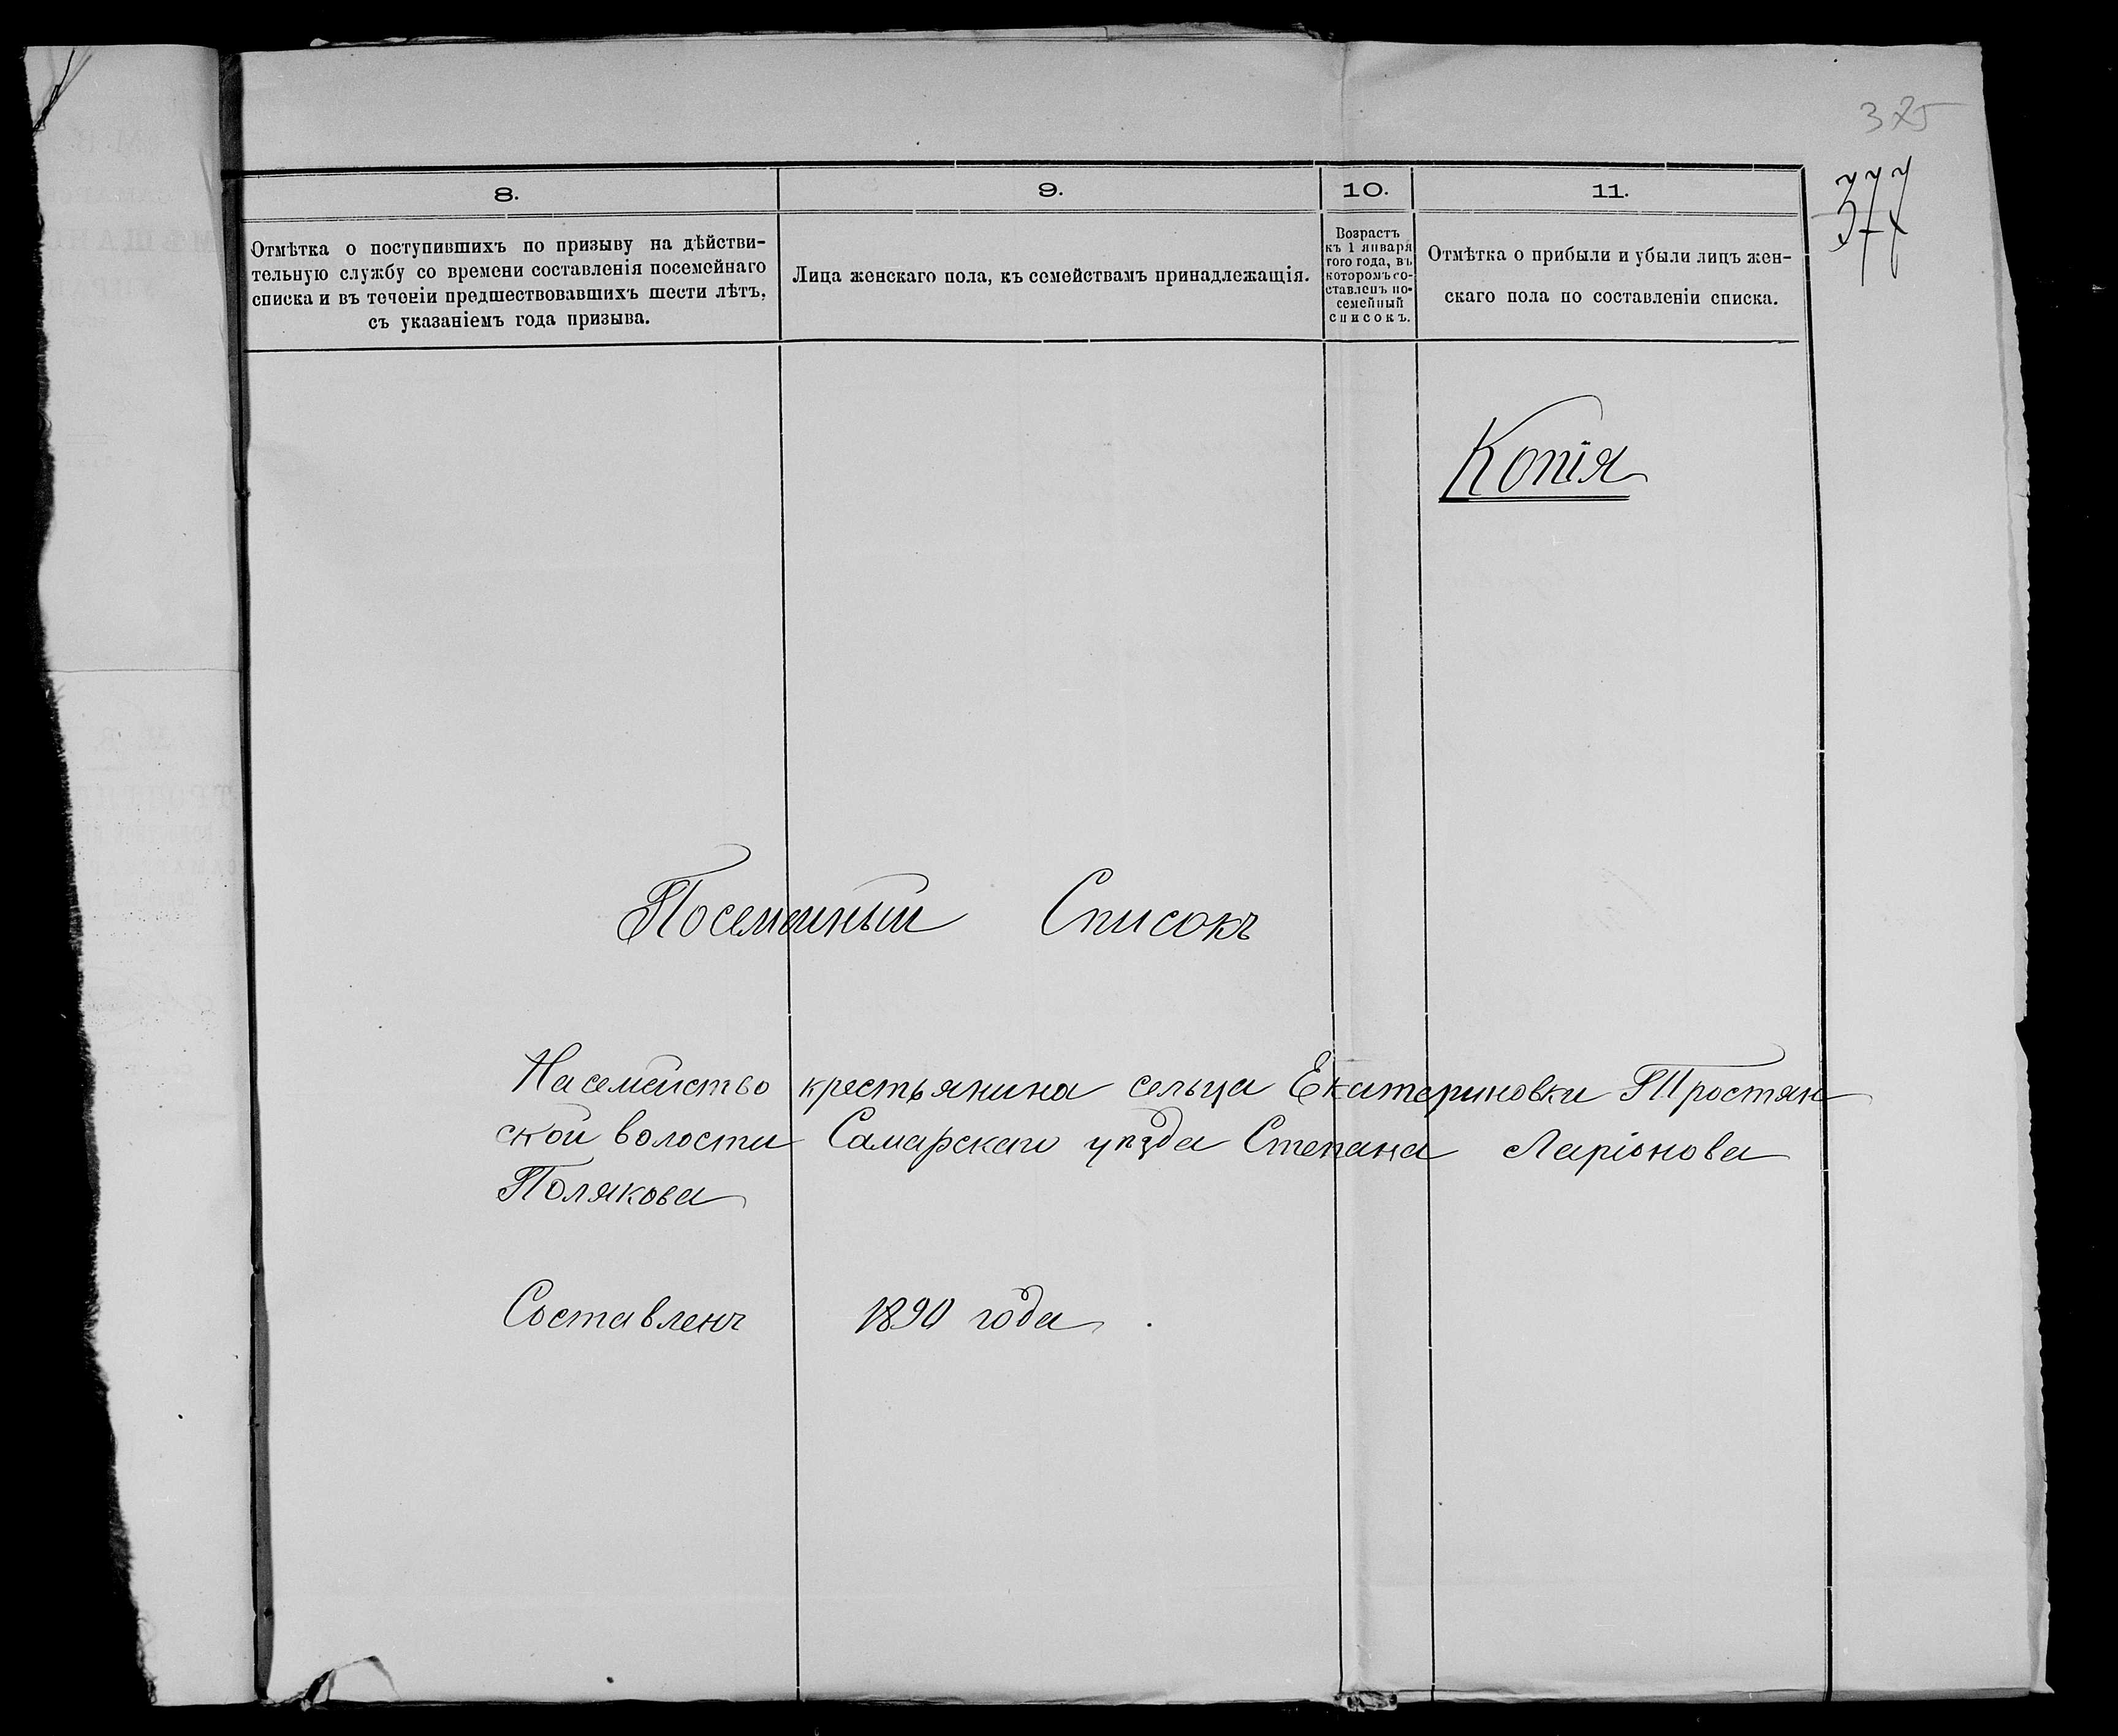 375
377
8.
9.
10.
11.
Отмѣтка о поступившихъ по призыву на дѣйстви-
тельную службу со времени составленія посемейнаго
списка и въ теченіи предшествовавшихъ шести лѣтъ,
съ указаніемъ года призыва.
Лица женскаго пола, къ семействамъ принадлежащія.
Возрастъ
къ 1 января
того года, въ
которомъ со-
ставленъ по-
семейный
списокъ.
Отмѣтка о прибыли и убыли лицъ жен-
скаго пола по составленіи списка.
Копія
Посемейный Списокъ
На семейство крестьянина сельца Екатериновки Тростян
ской волости Самарскаго уѣзда Степана Ларіонова
Полякова
Составленъ 1890 года.